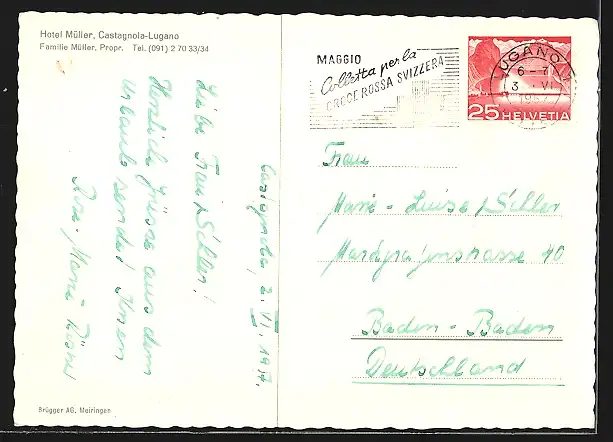 Hotel Müller, Castagnola-Lugano
Familie Müller, Propr. Tel. (091) 2 70 33/34
MAGGIO
Colletta per la
CROCE ROSSA SVIZZERA
LUGANO
6-7
3 VI
25 HELVETIA
Castagnola, 2. VI.
Liebe Frau
Herzliche Grüsse aus dem
Urlaub sendet Ihnen
Rose-Marie
Frau
Marie-Luise
Markgrafenstrasse 40
Baden-Baden
Deutschland
Brügger AG. Meiringen